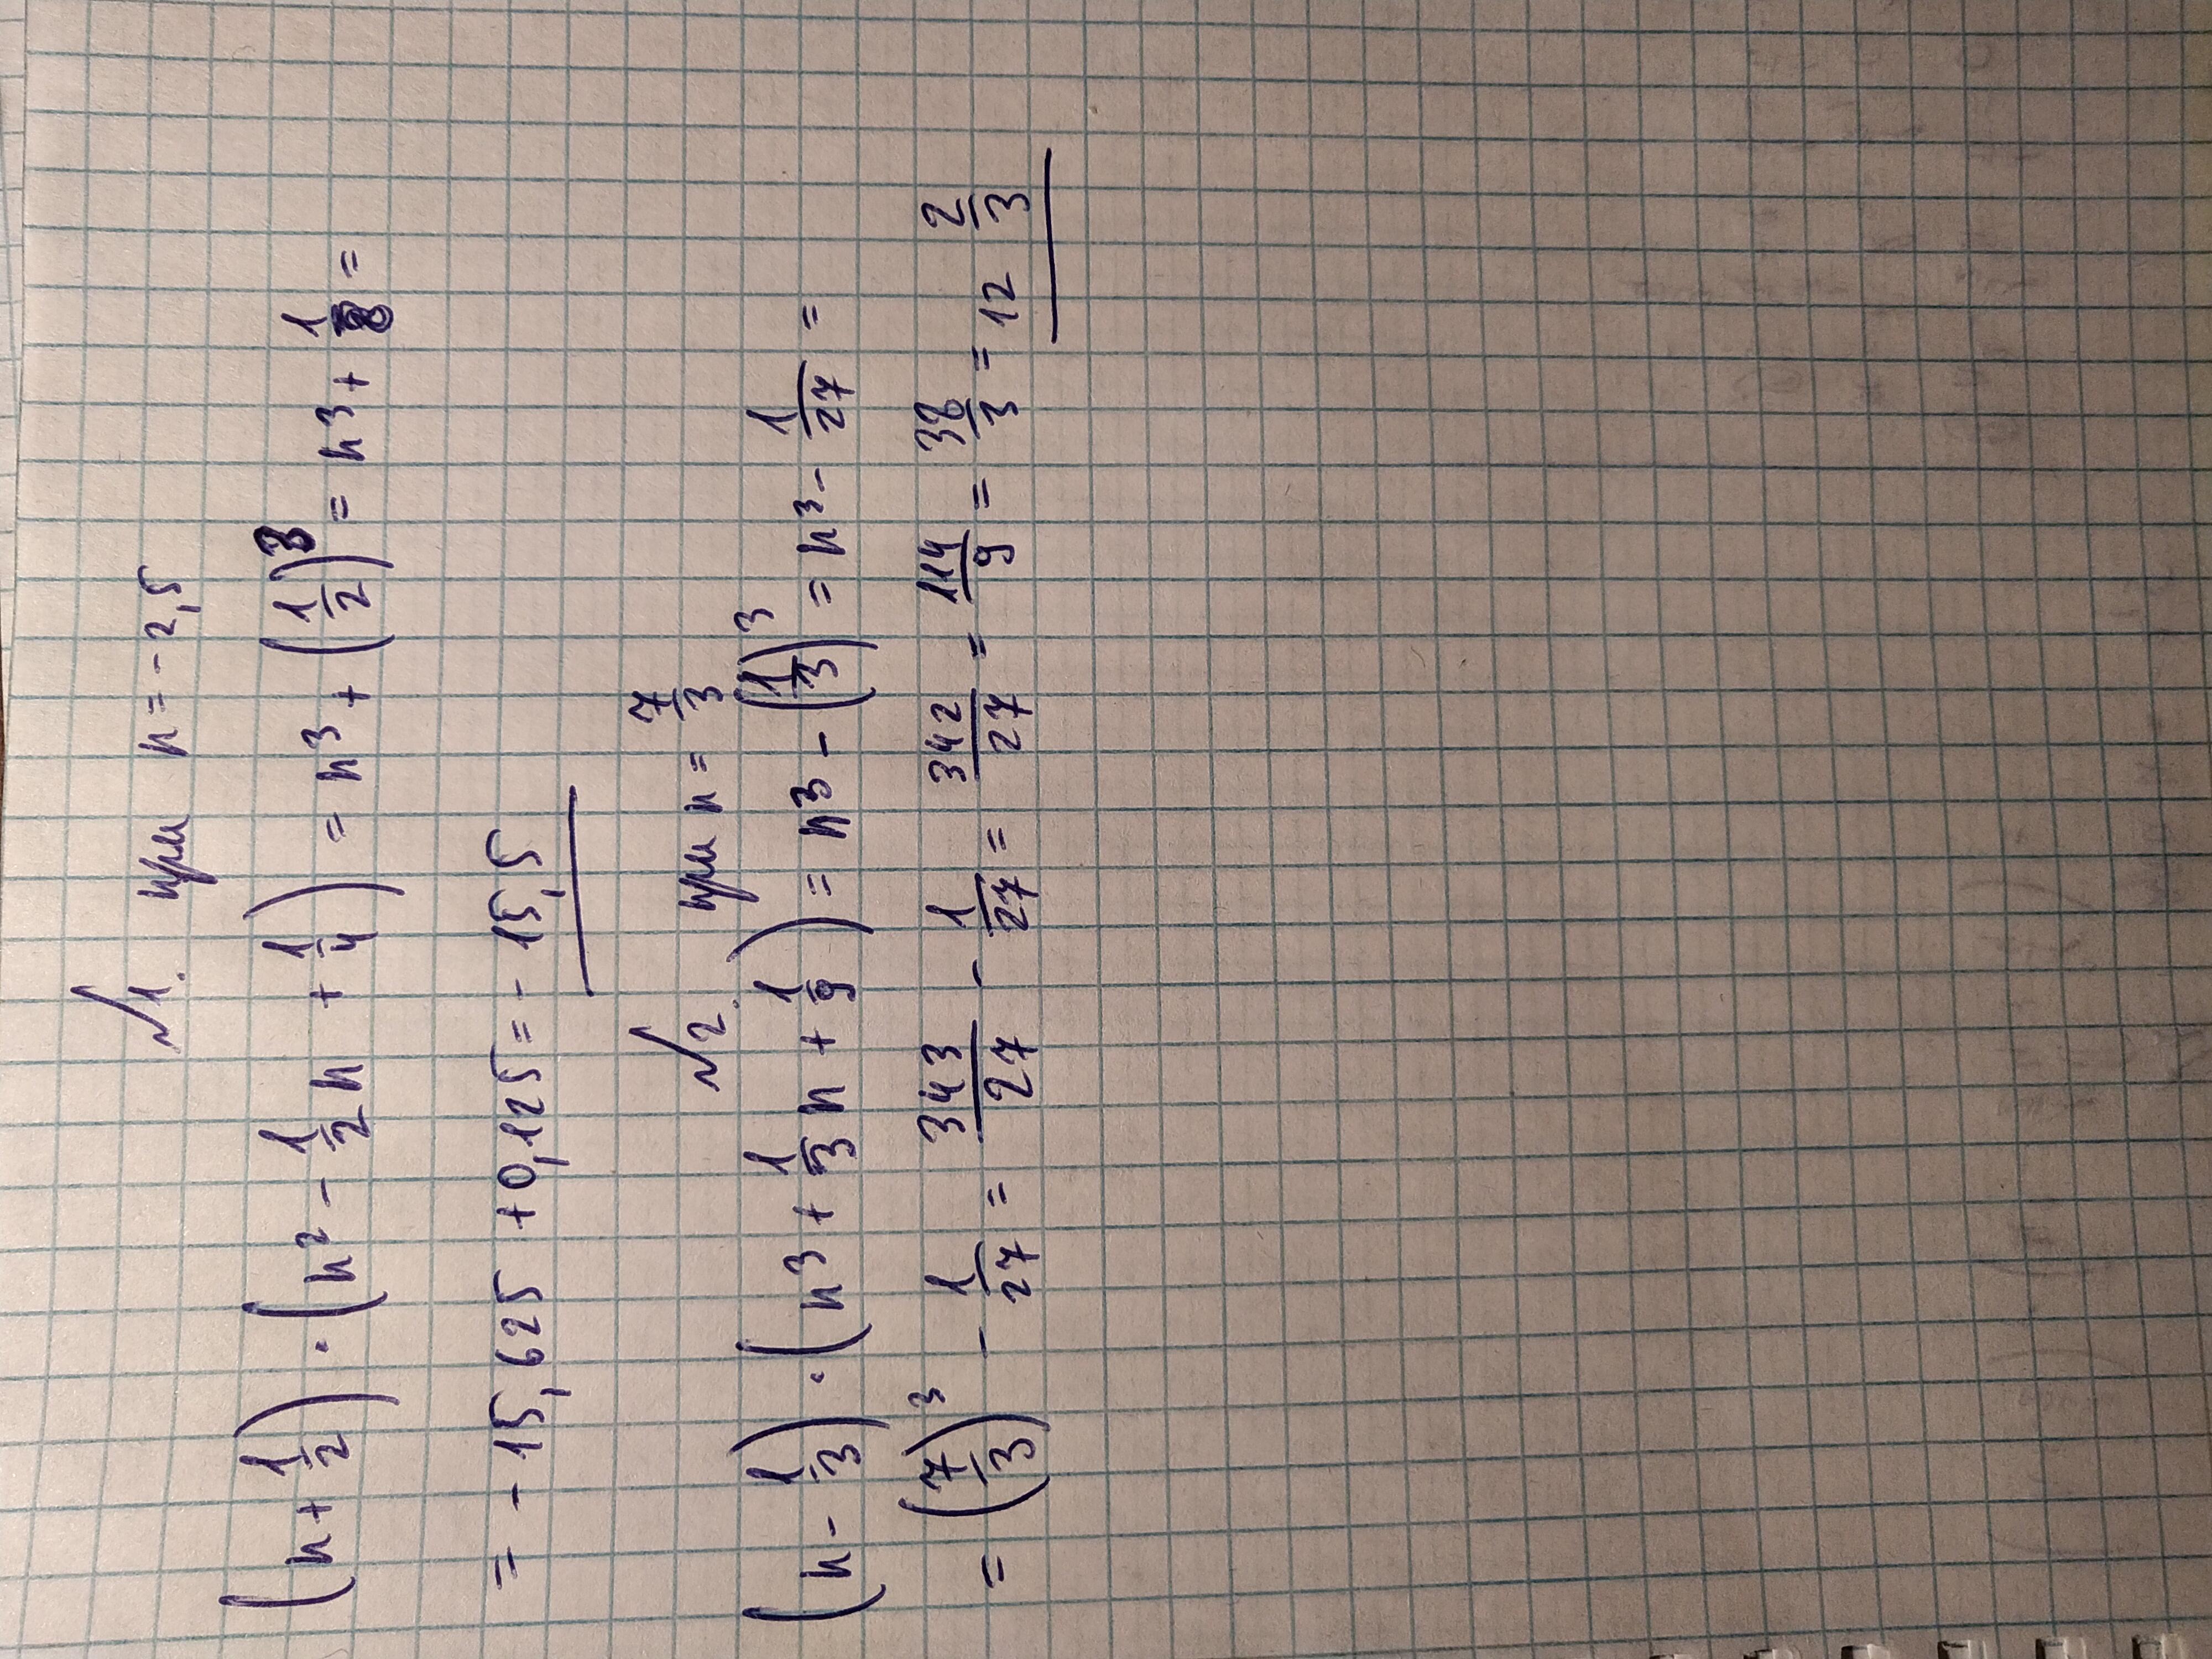 №1.
при n = -2,5
(n + 1/2) · (n² - 1/2 n + 1/4) = n³ + (1/2)³ = n³ + 1/8 =
= - 15,625 + 0,125 = - 15,5
№2.
при n = 7/3
(n - 1/3) · (n³ + 1/3 n + 1/9) = n³ - (1/3)³ = n³ - 1/27 =
= (7/3)³ - 1/27 = 343/27 - 1/27 = 342/27 = 114/9 = 38/3 = 12 2/3